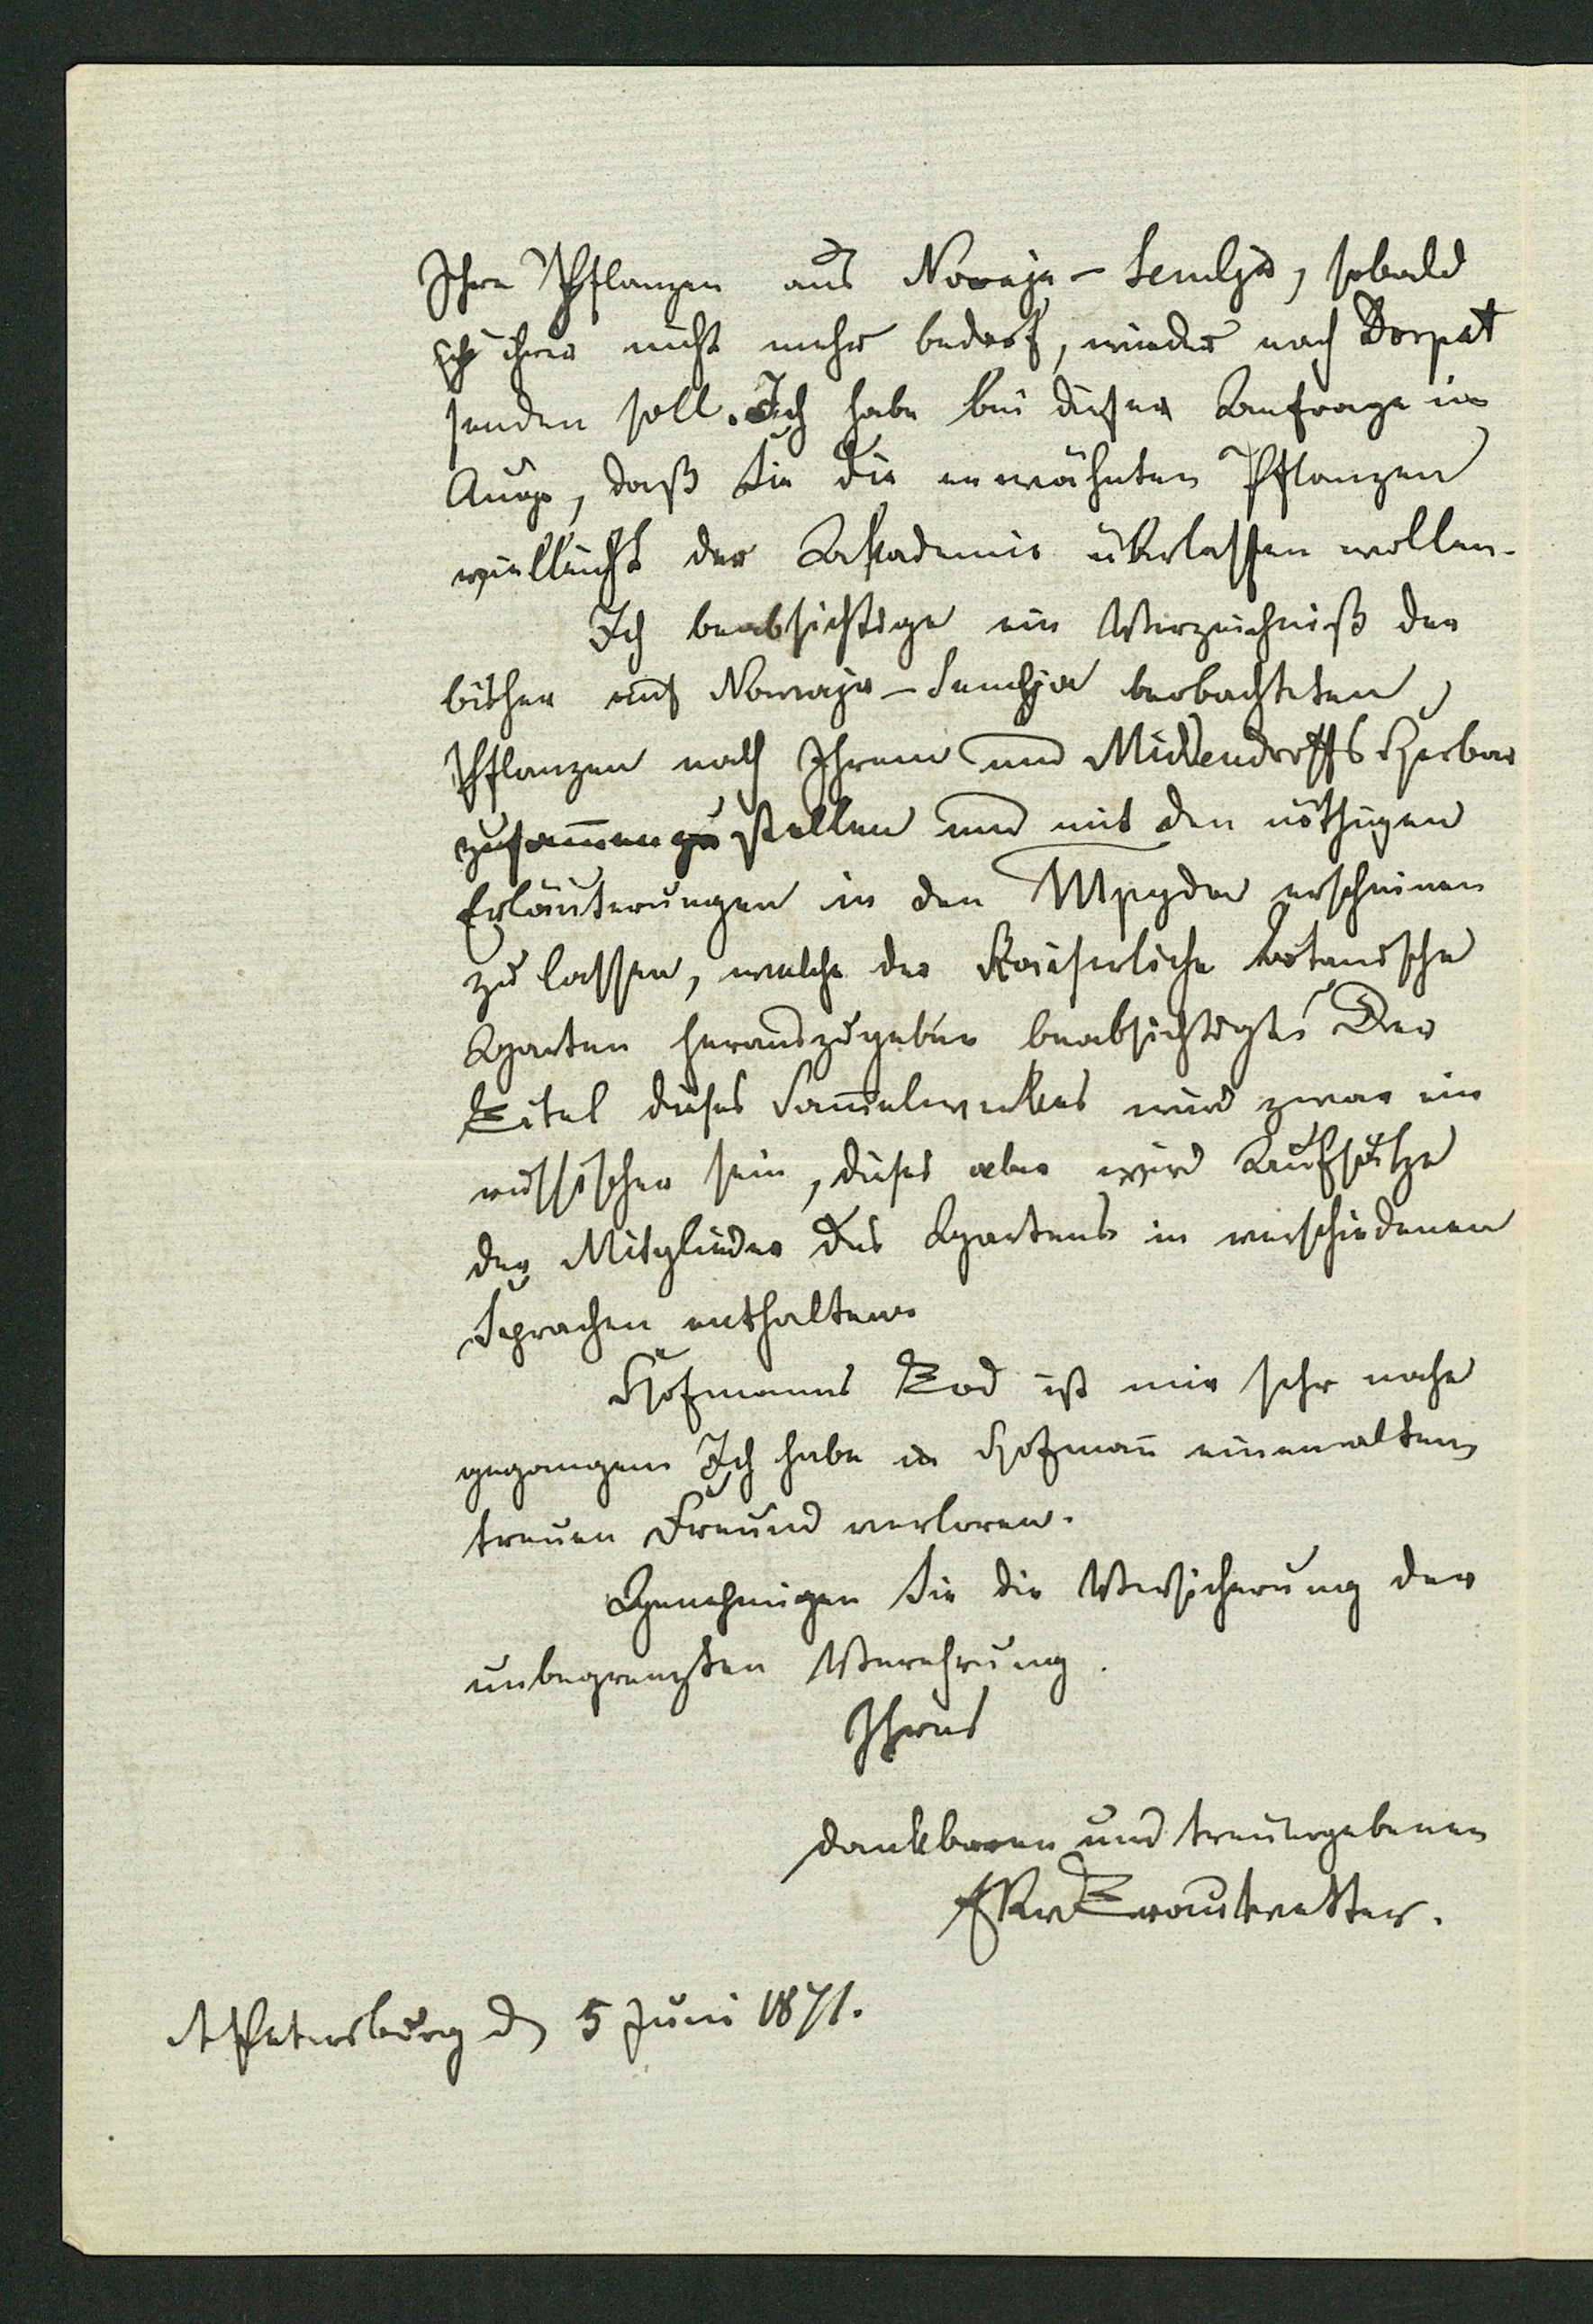 Ihre Pflanzen aus Nowaja-Semlja, sobald
ich ihrer nicht mehr bedarf, wieder nach Dorpat
senden soll. Ich habe bei dieser Anfrage im
Auge, daß Sie die erwähnten Pflanzen
vielleicht der Akademie überlassen wollen.
Ich beabsichtige ein Verzeichniß der
bisher auf Nowaja-Semlja beobachteten
Pflanzen nach Ihrem und Middendorffs Herbar
zusammenzustellen und mit den nöthigen
Erläuterungen in den Труды erscheinen
zu lassen, welche der Kaiserliche botanische
Garten herauszugeben beabsichtigt. Der
Titel dieses Sammelwerkes wird zwar ein
russischer sein, dieses aber wird Aufsätze
der Mitglieder des Gartens in verschiedenen
Sprachen enthalten.
Hofmanns Tod ist mir sehr nahe
gegangen. Ich habe in Hofmann einen alten
treuen Freund verloren.
Genehmigen Sie die Versicherung der
unbegrenzten Verehrung.
Ihres
dankbaren und treuergebenen
ERvTrautvetter.
St Petersburg d 5 Juni 1871.